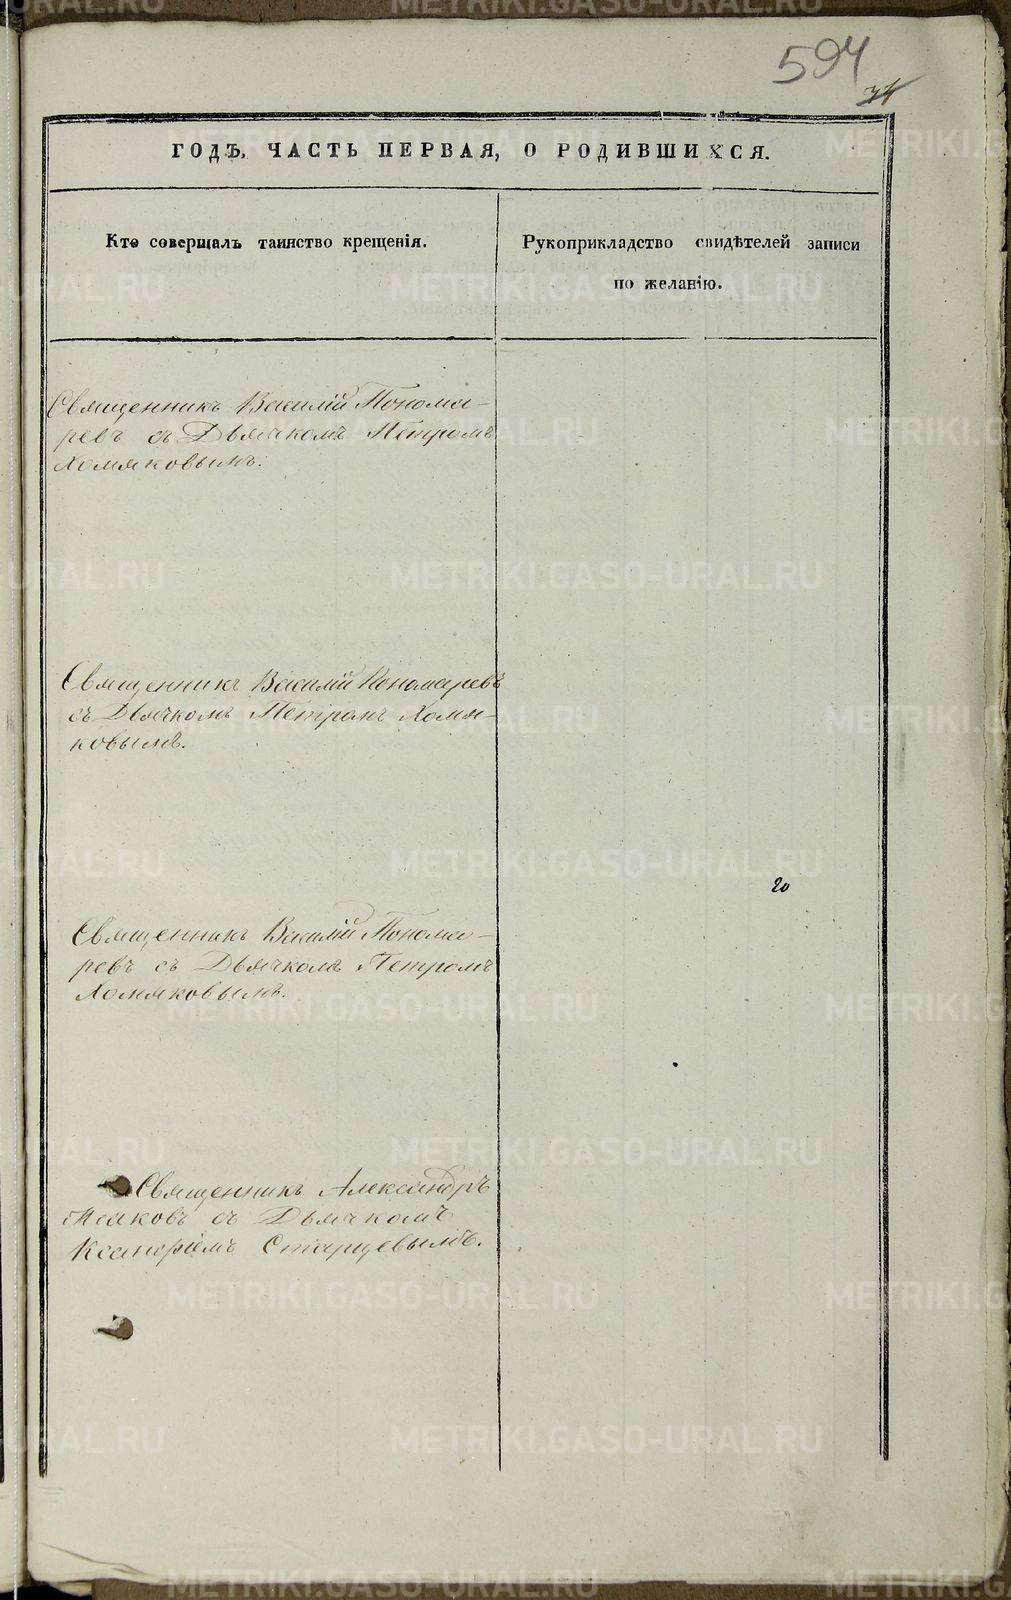 594
ГОДЪ, ЧАСТЬ ПЕРВАЯ, О РОДИВШИХСЯ.
Кто совершалъ таинство крещенія.
Рукоприкладство свидѣтелей записи
по желанію.
Священникъ Василій Понома-
ревъ съ Дьячкомъ Петромъ
Хомяковымъ.
Священникъ Василій Пономаревъ
съ Дьячкомъ Петромъ Хомя-
ковымъ.
20
Священникъ Василій Понома-
ревъ съ Дьячкомъ Петромъ
Хомяковымъ.
Священникъ Александръ
съ Дьячкомъ
Старцевымъ.
METRIKI.GASO-URAL.RU